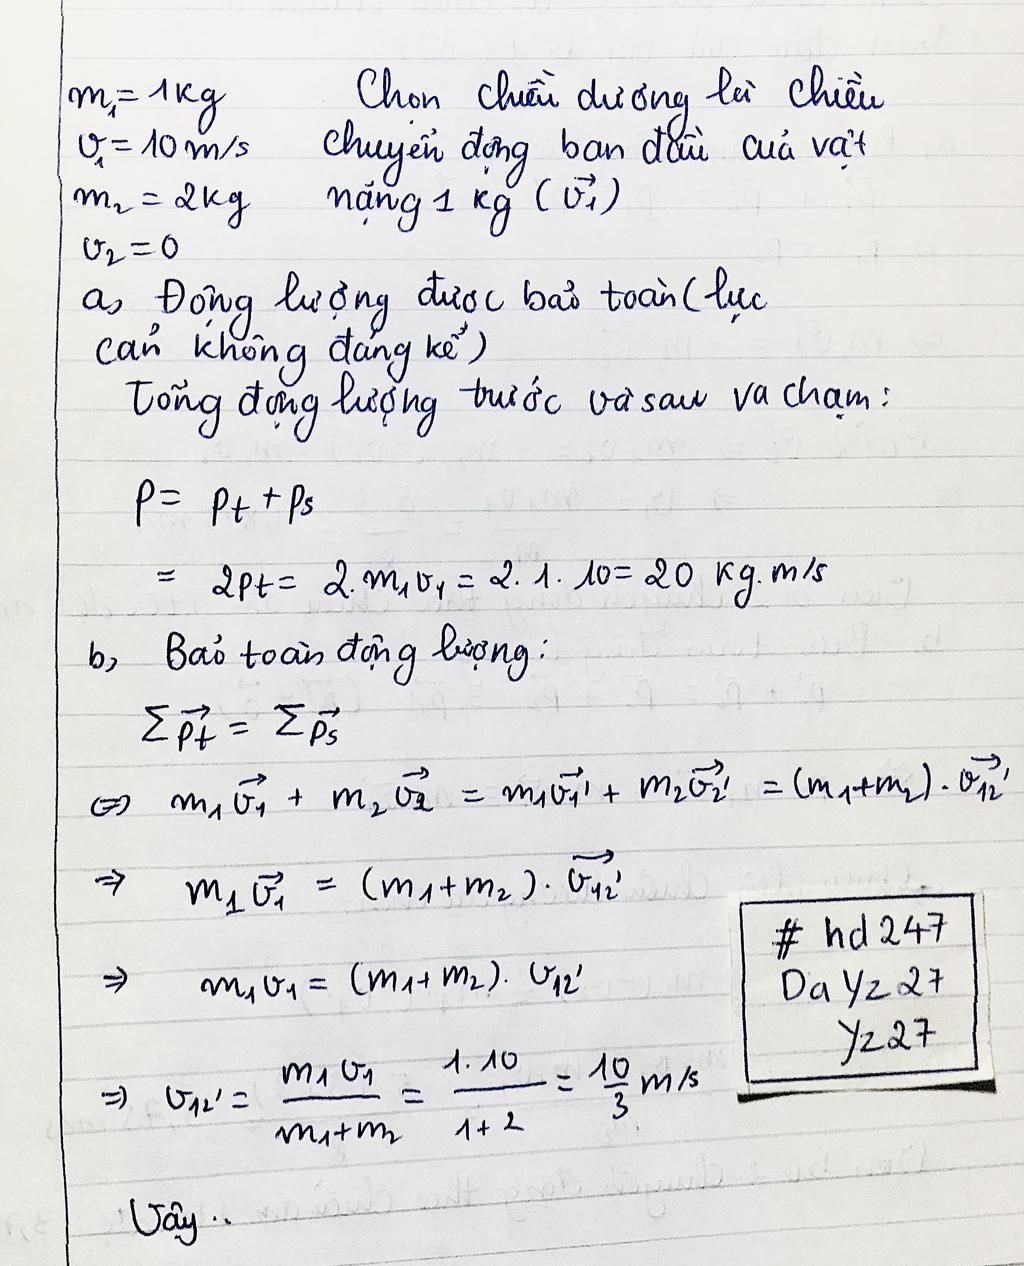 m₁ = 1kg Chọn chiều dương là chiều
v₁ = 10 m/s chuyển động ban đầu của vật
m₂ = 2kg nặng 1 kg (v₁→)
v₂ = 0
a, Động lượng được bảo toàn (lực
cản không đáng kể)
Tổng động lượng trước và sau va chạm:
p = pt + ps
= 2pt = 2.m₁v₁ = 2. 1. 10 = 20 kg.m/s
b, Bảo toàn động lượng:
Σpt→ = Σps→
⇔ m₁v₁→ + m₂v₂→ = m₁v₁'→ + m₂v₂'→ = (m₁+m₂).v₁₂'→
⇒ m₁v₁→ = (m₁+m₂).v₁₂'→
⇒ m₁v₁ = (m₁+m₂). v₁₂'
⇒ v₁₂' = m₁v₁/(m₁+m₂) = 1.10/(1+2) = 10/3 m/s
Vậy..
# hd247
Da Yz27
Yz27